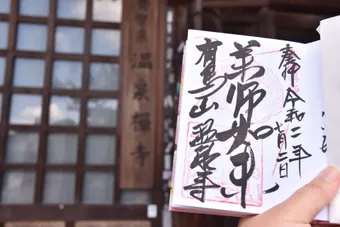 温泉禅寺
奉拝
令和二年
七月二日
薬師如来
有馬山温泉寺